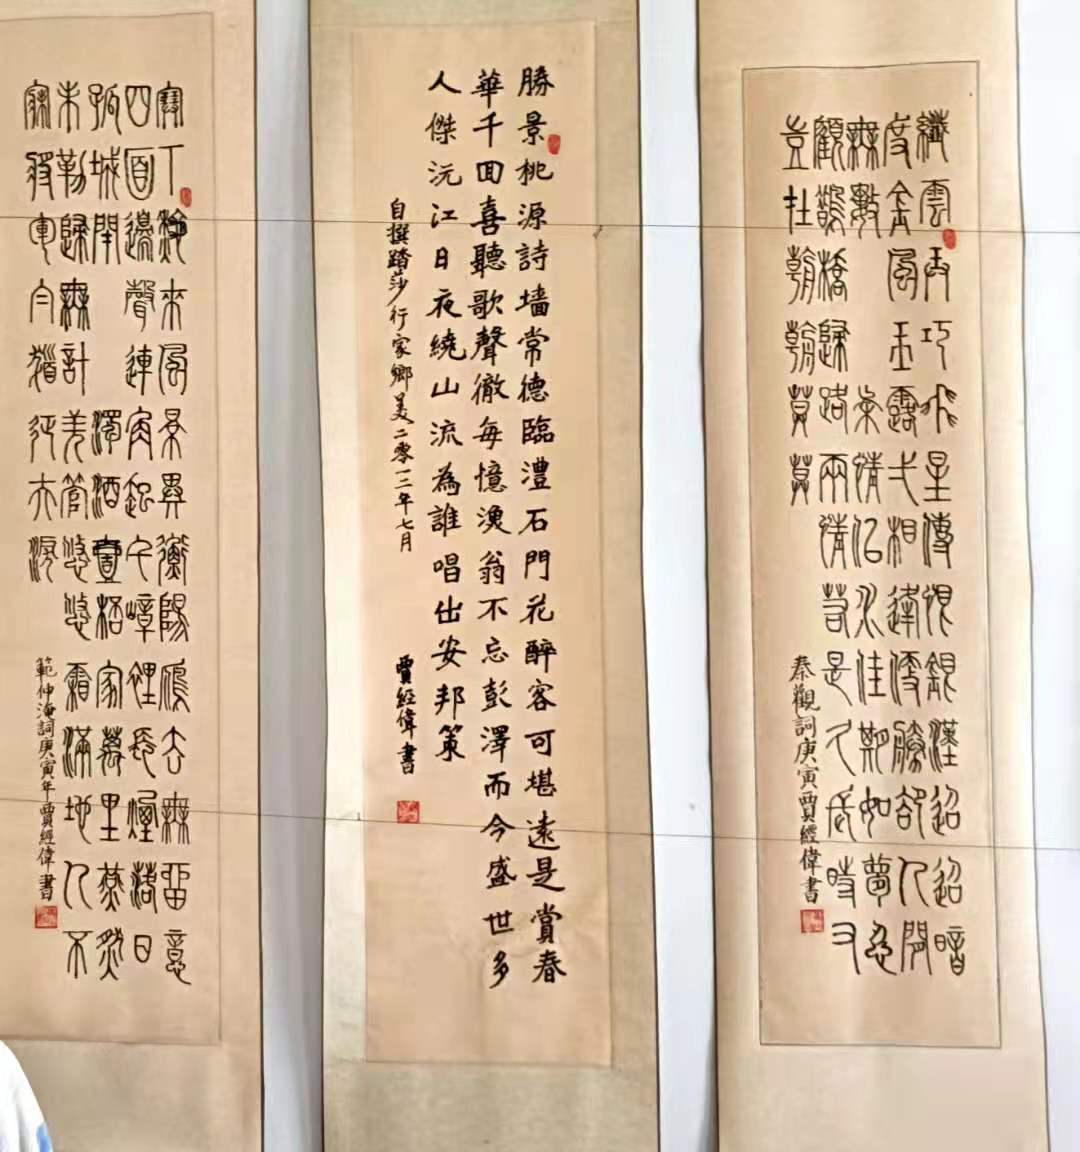 纖雲弄巧飛星傳恨銀漢迢迢暗
度金風玉露弌相逢便勝卻人間
無數 柔情似水佳期如夢忍
顧鵲橋歸路兩情若是久長時又
豈在朝朝莫莫
秦觀詞庚寅賈經偉書
勝景桃源詩墻常德臨澧石門花醉客可堪遠是賞春
華千回喜聽歌聲徹每憶漁翁不忘彭澤而今盛世多
人傑沅江日夜繞山流為誰唱出安邦策
自撰踏莎行家鄉美二零一二年七月 賈經偉書
塞下秋來風景異衡陽雁去無留意
四面邊聲連角起千嶂裡長煙落日
孤城閉 濁酒壹杯家萬里燕然
未勒歸無計羌管悠悠霜滿地人不
寐將軍白髮征夫淚
範仲淹詞庚寅年賈經偉書